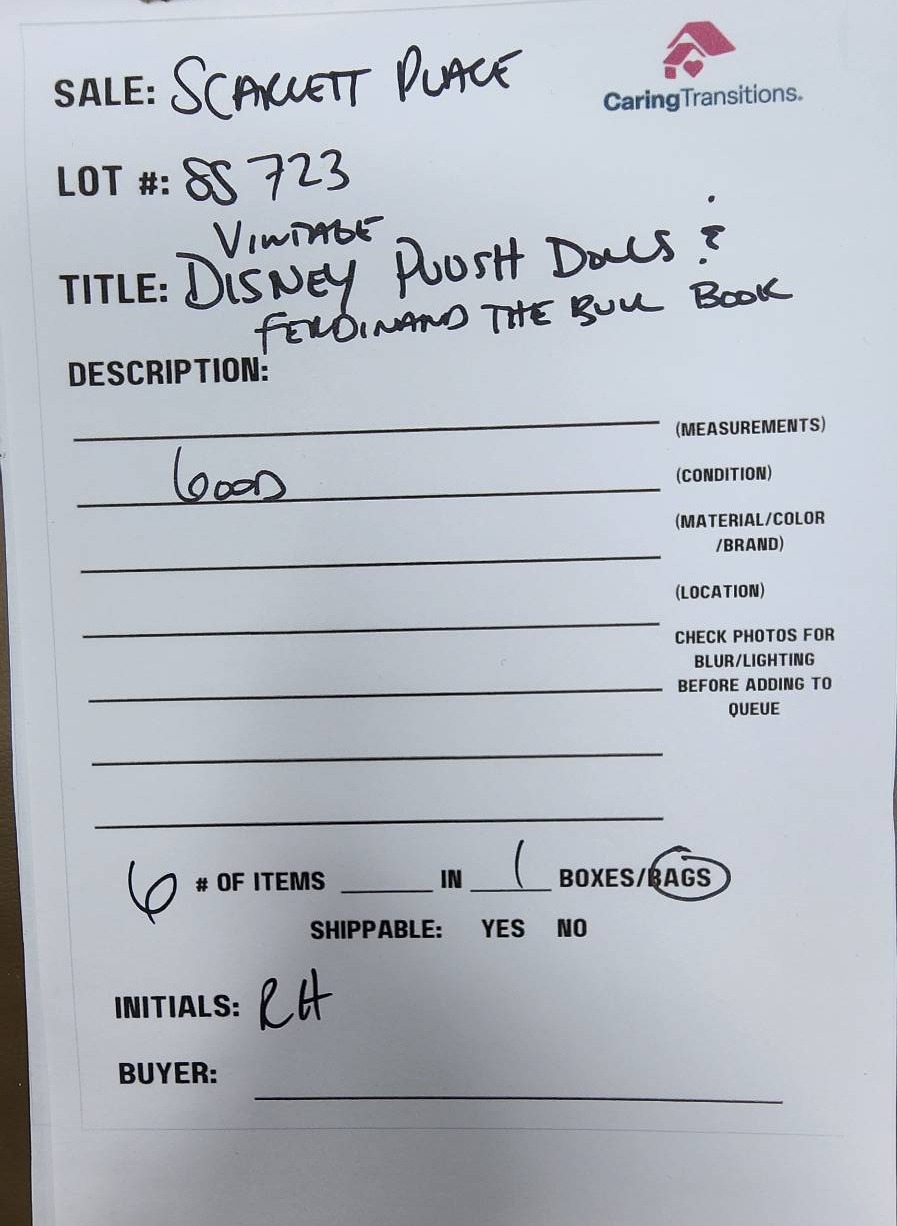 CaringTransitions.
SALE: SCARLETT PLACE
LOT #: SS 723
VINTAGE
TITLE: DISNEY PLUSH DOLLS &
FERDINAND THE BULL BOOK
DESCRIPTION:
(MEASUREMENTS)
GOOD (CONDITION)
(MATERIAL/COLOR
/BRAND)
(LOCATION)
CHECK PHOTOS FOR
BLUR/LIGHTING
BEFORE ADDING TO
QUEUE
6 # OF ITEMS IN 1 BOXES/BAGS
SHIPPABLE: YES NO
INITIALS: RH
BUYER: